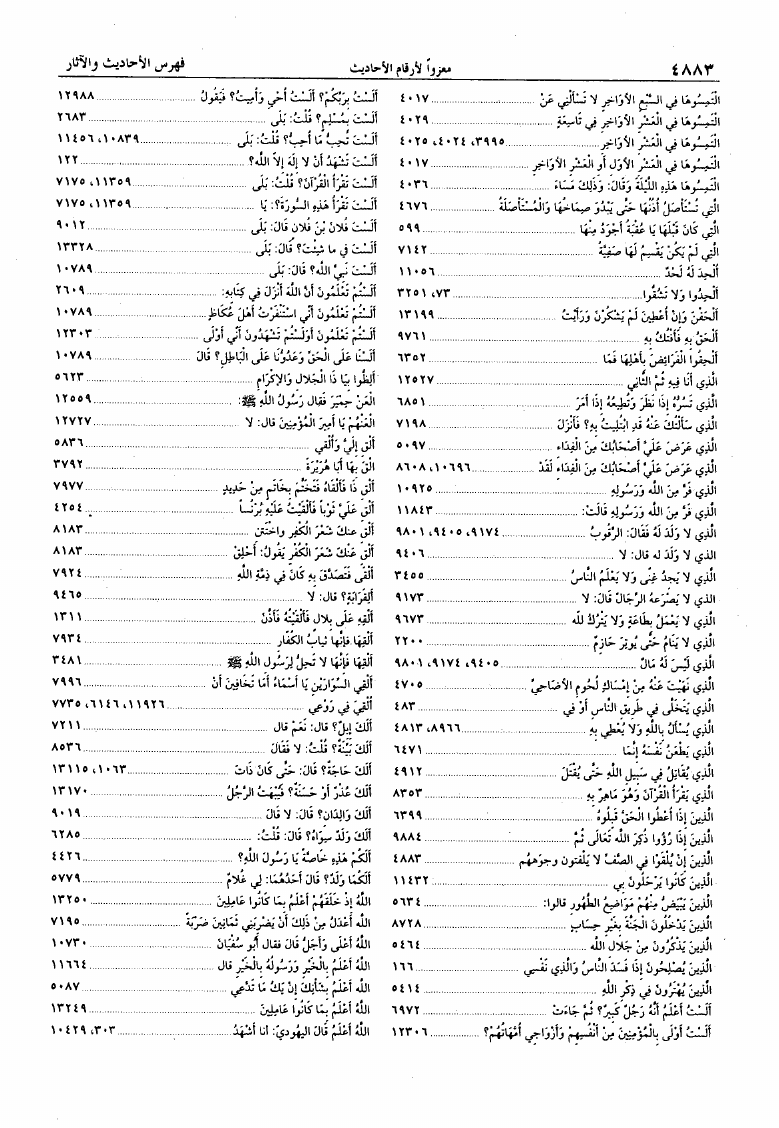 ٤٨٨٣ معزواً لأرقام الأحاديث فهرس الأحاديث والآثار
الْتَمِسُوهَا فِي السَّبْعِ الأَوَاخِرِ لَا تَسْأَلْنِي عَنْ ٤٠١٧
الْتَمِسُوهَا فِي العَشْرِ الأَوَاخِرِ فِي تَاسِعَةٍ ٤٠٢٩
الْتَمِسُوهَا فِي العَشْرِ الأَوَاخِرِ ٣٩٩٥، ٤٠٢٤، ٤٠٢٥
الْتَمِسُوهَا فِي العَشْرِ الأَوَّلِ أَوِ العَشْرِ الأَوَاخِرِ ٤٠١٧
الْتَمِسُوهَا هَذِهِ اللَّيْلَةَ وَقَالَ: وَذَلِكَ مَسَاءَ ٤٠٣٦
الَّتِي تُسْتَأْصَلُ أُذُنُهَا حَتَّى يَبْدُوَ صِمَاخُهَا وَالْمُسْتَأْصَلَةُ ٤٦٧٦
الَّتِي كَانَ قَبْلَهَا يَا عُقْبَةُ أَجْوَدُ مِنْهَا ٥٩٩
الَّتِي لَمْ يَكُنْ يَقْسِمُ لَهَا صَفِيَّةُ ٧١٤٢
أَلْحِدَ لَهُ لَحْدٌ ١١٠٥٦
أَلْحِدُوا وَلَا تَشُقُّوا ٧٣، ٣٢٥١
أَلْحَفْنَ وَإِنْ أُعْطِينَ لَمْ يَشْكُرْنَ وَرَأَيْتُ ١٣١٩٩
أَلْحَقُ بِهِ فَأَفْتُكُ بِهِ ٩٧٦١
أَلْحِقُوا الْفَرَائِضَ بِأَهْلِهَا فَمَا ٦٣٥٢
الَّذِي أَنَا فِيهِ ثُمَّ الثَّانِي ١٢٥٢٧
الَّذِي تَسُرُّهُ إِذَا نَظَرَ وَتُطِيعُهُ إِذَا أَمَرَ ٦٨٥١
الَّذِي سَأَلْتُكَ عَنْهُ قَدِ ابْتُلِيتُ بِهِ؟ فَأَنْزَلَ ٧١٩٨
الَّذِي عَرَضَ عَلَيَّ أَصْحَابُكَ مِنَ الْفِدَاءِ ٥٠٩٧
الَّذِي عَرَضَ عَلَيَّ أَصْحَابُكَ مِنَ الْفِدَاءِ لَقَدْ ١٠٦٩٦، ٨٦٠٨
الَّذِي فَرَّ مِنَ اللهِ وَرَسُولِهِ ١٠٩٢٥
الَّذِي فَرَّ مِنَ اللهِ وَرَسُولِهِ قَالَتْ: ١١٨٤٣
الَّذِي لَا وَلَدَ لَهُ فَقَالَ: الرَّقُوبُ ٩١٧٤، ٩٤٠٥، ٩٨٠١
الذي لا وَلَدَ له قال: لا ٩٤٠٦
الَّذِي لَا يَجِدُ غِنًى وَلَا يَعْلَمُ النَّاسُ ٣٤٥٥
الذي لا يَصْرَعهُ الرِّجَالُ قَالَ: لا ٩١٧٣
الَّذِي لَا يَعْمَلُ بِطَاعَةٍ وَلَا يَتْرُكُ لله ٩٦٧٣
الَّذِي لَا يَنَامُ حَتَّى يُوتِرَ حَازِمٌ ٢٢٠٠
الَّذِي لَيْسَ لَهُ مَالٌ ٩٤٠٥، ٩١٧٤، ٩٨٠١
الَّذِي نَهَيْتَ عَنْهُ مِنْ إِمْسَاكِ لُحُومِ الأَضَاحِيِّ ٤٧٠٥
الَّذِي يَتَخَلَّى فِي طَرِيقِ النَّاسِ أَوْ فِي ٤٨٣
الَّذِي يُسْأَلُ بِاللهِ وَلَا يُعْطِي بِهِ ٨٩٦٦، ٤٨١٣
الَّذِي يَطْعَنُ نَفْسَهُ إِنَّمَا ٦٤٧١
الَّذِي يُقَاتِلُ فِي سَبِيلِ اللهِ حَتَّى يُقْتَلَ ٤٩١٢
الَّذِي يَقْرَأُ القُرْآنَ وَهُوَ مَاهِرٌ بِهِ ٨٣٥٣
الَّذِينَ إِذَا أُعْطُوا الْحَقَّ قَبِلُوهُ ٦٣٩٩
الَّذِينَ إِذَا رُؤُوا ذُكِرَ اللهُ تَعَالَى ثُمَّ ٩٨٨٤
الَّذِينَ إِنْ يُلْقَوْا فِي الصَّفِّ لَا يَلْفِتونَ وجوهَهُم ٤٨٨٣
الَّذِينَ كَانُوا يَرْحَلُونَ بِي ١١٤٣٢
الَّذِينَ يَبْيَضُّ مِنْهُمْ مَوَاضِعُ الطُّهُورِ قالوا: ٥٦٣٤
الَّذِينَ يَدْخُلُونَ الجَنَّةَ بِغَيْرِ حِسَابٍ ٨٧٢٨
الَّذِينَ يَذْكُرُونَ مِنْ جَلَالِ اللهِ ٥٤٦٤
الَّذِينَ يُصْلِحُونَ إِذَا فَسَدَ النَّاسُ وَالَّذِي نَفْسِي ١٦٦
الَّذِينَ يُهْتَرُونَ فِي ذِكْرِ اللهِ ٥٤١٤
أَلَسْتُ أَعْلَمُ أَنَّهُ رَجُلٌ كَبِيرٌ؟ ثُمَّ جَاءَتْ ٦٩٧٢
أَلَسْتُ أَوْلَى بِالْمُؤْمِنِينَ مِنْ أَنْفُسِهِمْ وَأَزْوَاجِي أُمَّهَاتُهُمْ؟ ١٢٣٠٦
أَلَسْتُ بِرَبِّكُمْ؟ أَلَسْتُ أُحْيِ وَأُمِيتُ؟ فَيَقُولُ ١٢٩٨٨
أَلَسْتَ بِمُسْلِمٍ؟ قُلْتُ: بَلَى ٢٦٨٣
أَلَسْتَ تُحِبُّ مَا أُحِبُّ؟ قُلْتُ: بَلَى ١٠٨٣٩، ١١٤٥٦
أَلَسْتَ تَشْهَدُ أَنْ لا إِلَهَ إِلاَّ اللهُ؟ ١٢٢
أَلَسْتَ تَقْرَأُ القُرْآنَ؟ قُلْتُ: بَلَى ١١٣٥٩، ٧١٧٥
أَلَسْتَ تَقْرَأُ هَذِهِ السُّورَةَ؟: يَا ١١٣٥٩، ٧١٧٥
أَلَسْتَ فُلَانَ بْنَ فُلَانٍ قَالَ: بَلَى ٩٠١٢
أَلَسْتَ في ما شِئْتَ؟ قَالَ: بَلَى ١٣٣٢٨
أَلَسْتَ نَبِيَّ اللهِ؟ قَالَ: بَلَى ١٠٧٨٩
أَلَسْتُمْ تَعْلَمُونَ أَنَّ اللهَ أَنْزَلَ فِي كِتَابِهِ: ٢٦٠٩
أَلَسْتُمْ تَعْلَمُونَ أَنِّي اسْتَنْفَرْتُ أَهْلَ عُكَاظٍ ١٠٧٨٩
أَلَسْتُمْ تَعْلَمُونَ أَوَلَسْتُمْ تَشْهَدُونَ أَنِّي أَوْلَى ١٢٣٠٣
أَلَسْنَا عَلَى الْحَقِّ وَعَدُوُّنَا عَلَى الْبَاطِلِ؟ قَالَ ١٠٧٨٩
أَلِظُّوا بِيَا ذَا الْجَلَالِ وَالإِكْرَامِ ٥٦٢٣
الْعَنْ حِمْيَرَ فَقَالَ رَسُولُ اللهِ ﷺ: ١٢٥٥٩
الْعَنْهُمْ يَا أَمِيرَ الْمُؤْمِنِينَ قال: لا ١٢٧٢٧
أَلْقِ إِلَيَّ وَأَلْقي ٥٨٣٦
الْقَ بِهَا أَبَا هُرَيْرَةَ ٣٧٩٢
أَلْقِ ذَا فَأَلْقَاهُ فَتَخَتَّمَ بِخَاتَمٍ مِنْ حَدِيدٍ ٧٩٧٧
أَلْقِ عَلَيَّ ثَوْباً فَأَلْقَيْتُ عَلَيْهِ بُرْنُساً ٤٢٥٤
أَلْقِ عنكَ شَعْرَ الكُفْرِ واخْتَتِن ٨١٨٣
أَلْقِ عَنْكَ شَعْرَ الْكُفْرِ يَقُولُ: أَحْلِقْ ٨١٨٣
أَلْقَى فَتَصَدَّقَ بِهِ كَانَ فِي ذِمَّةِ اللهِ ٧٩٢٤
أَلِقَرَابَةٍ؟ قال: لا ٩٤٦٥
أَلْقِهِ عَلَى بِلَالٍ فَأَلْقَيْتُهُ فَأَذَّنَ ١٣١١
أَلْقِهَا فَإِنَّهَا ثِيَابُ الكُفَّارِ ٧٩٣٤
أَلْقِهَا فَإِنَّهَا لَا تَحِلُّ لِرَسُولِ اللهِ ﷺ ٣٤٨١
أَلْقِي السِّوَارَيْنِ يَا أَسْمَاءُ أَمَا تَخَافِينَ أَنْ ٧٩٩٦
أُلْقِيَ فِي رَوْعِي ١١٩٢٦، ٦١٤٦، ٧٧٣٥
أَلَكَ إِبِلٌ؟ قال: نَعَمْ قال ٧٢١١
أَلَكَ بَيِّنَةٌ؟ قُلْتُ: لَا فَقَالَ ٨٥٣٦
أَلَكَ حَاجَةٌ؟ قَالَ: حَتَّى كَانَ ذَاتَ ١٠٦٣، ١٣١١٥
أَلَكَ عُذْرٌ أَوْ حَسَنَةٌ؟ فَيُبْهَتُ الرَّجُلُ ١٣١٧٠
أَلَكَ وَالِدَانِ؟ قَالَ: لَا قَالَ ٩٠١٩
أَلَكَ وَلَدٌ سِوَاهُ؟ قَالَ: قُلْتُ: ٦٢٨٥
أَلَكُمْ هَذِهِ خَاصَّةً يَا رَسُولَ اللهِ؟ ٤٤٢٦
أَلَكُمَا وَلَدٌ؟ قَالَ أَحَدُهُمَا: لِي غُلَامٌ ٥٧٧٩
اللهُ إِذْ خَلَقَهُمْ أَعْلَمُ بِمَا كَانُوا عَامِلِينَ ١٣٢٥٠
اللهُ أَعْدَلُ مِنْ ذَلِكَ أَنْ يَضْرِبَنِي ثَمَانِينَ ضَرْبَةً ٧١٩٥
اللهُ أَعْلَى وَأَجَلُّ قَالَ فقال أَبُو سُفْيَانَ ١٠٧٣٠
اللهُ أَعْلَمُ بِالْخَيْرِ وَرَسُولُهُ بِالْخَيْرِ قال ١١٦٦٤
اللهُ أَعْلَمُ بِشَأْنِكَ إِنْ يَكُ مَا تَدَّعِي ٥٠٨٧
اللهُ أَعْلَمُ بِمَا كَانُوا عَامِلِينَ ١٣٢٤٩
اللهُ أَعْلَمُ قَالَ اليَهُودِيُّ: أنا أَشْهَدُ ٣٠٣، ١٠٤٢٩